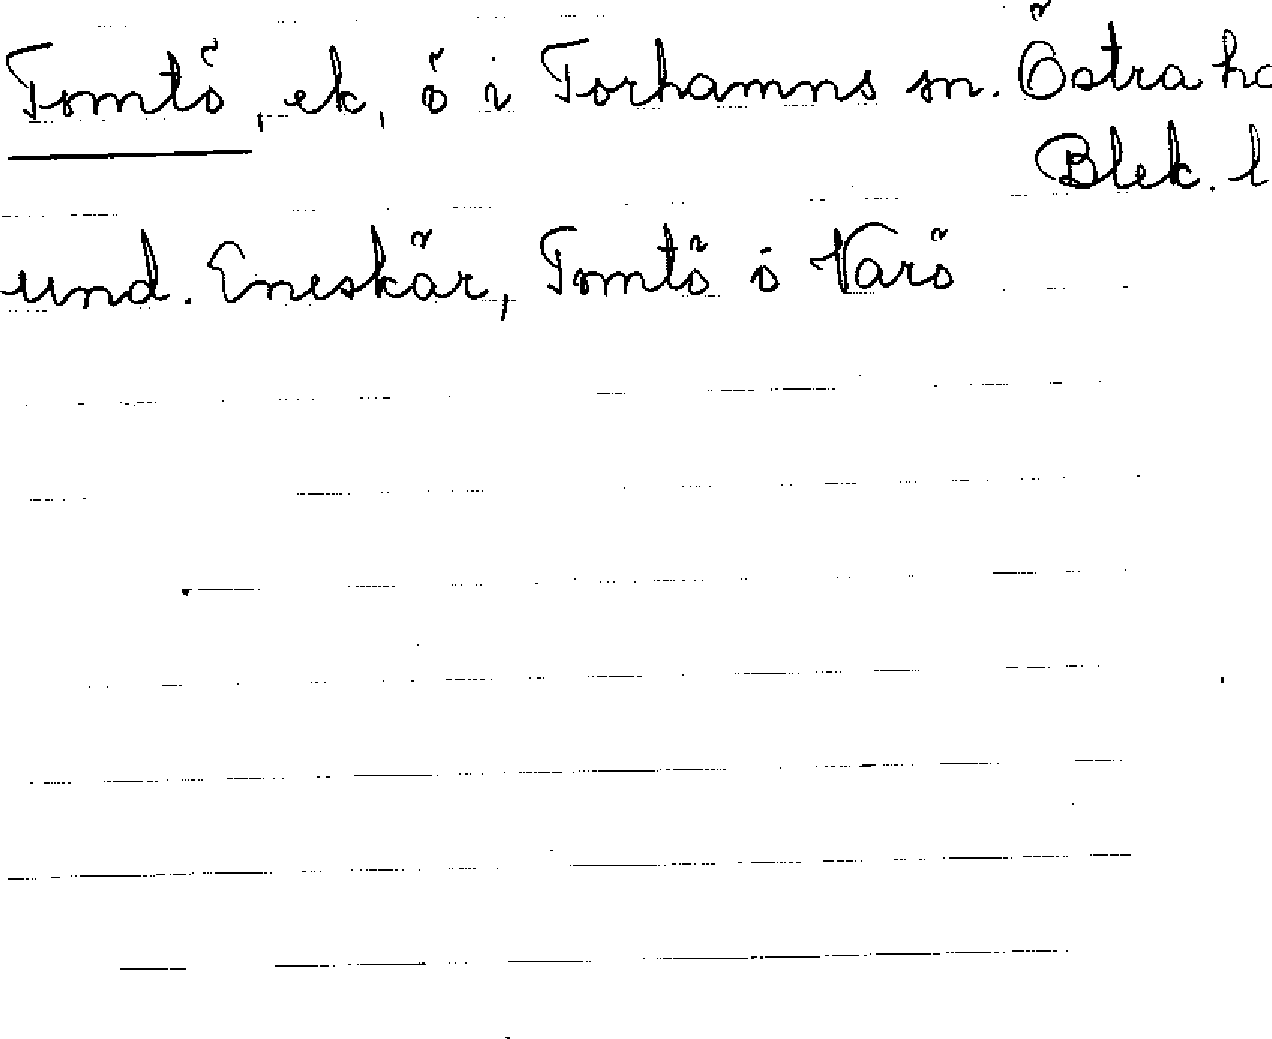 Tomtö, ek, ö i Torhamns sn. Östra h
Blek. l
und. Eneskär, Tomtö o Varö